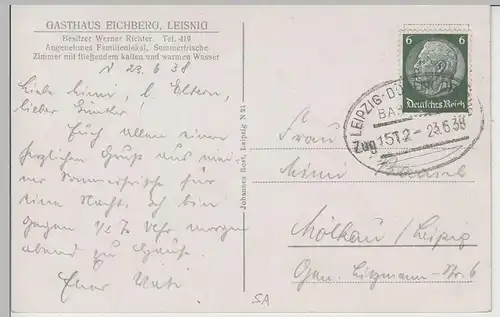 GASTHAUS EICHBERG, LEISNIG
Besitzer Werner Richter. Tel. 419
Angenehmes Familienlokal, Sommerfrische
Zimmer mit fließendem kalten und warmen Wasser
23.6.38
Liebe Mimi, l. Eltern,
lieber Günter!
Euch allen einen
herzlichen Gruß aus
Sommerfrische für
eine Nacht. Ich bin
gegen 1/2 7 Uhr morgen
abend zu Hause.
Euer Vati
Johannes Rost, Leipzig N 21
6 6
Deutsches Reich
LEIPZIG-DÖ
BA
Zug 1512 - 23.6.38
Frau
Mimi
Mölkau / Leipzig
Gen. Litzmann-Str 6
SA